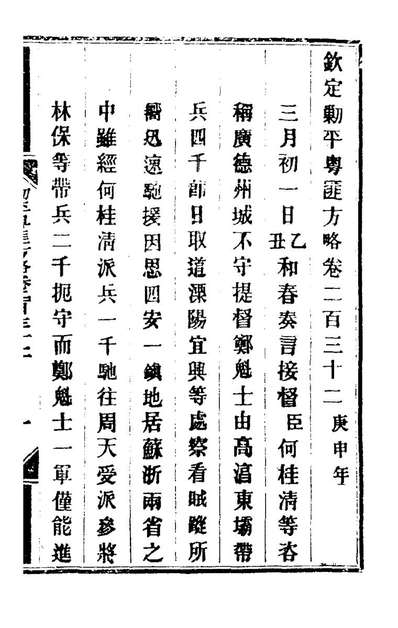 欽定勦平粵匪方略卷二百三十二庚申年
三月初一日乙丑和春奏言接督臣何桂清等咨
稱廣德州城不守提督鄭魁士由高淳東壩帶
兵四千卽日取道溧陽宜興等處察看賊蹤所
嚮迅速馳援因思四安一鎮地居蘇浙兩省之
中雖經何桂清派兵一千馳往周天受派參將
林保等帶兵二千扼守而鄭魁士一軍僅能進